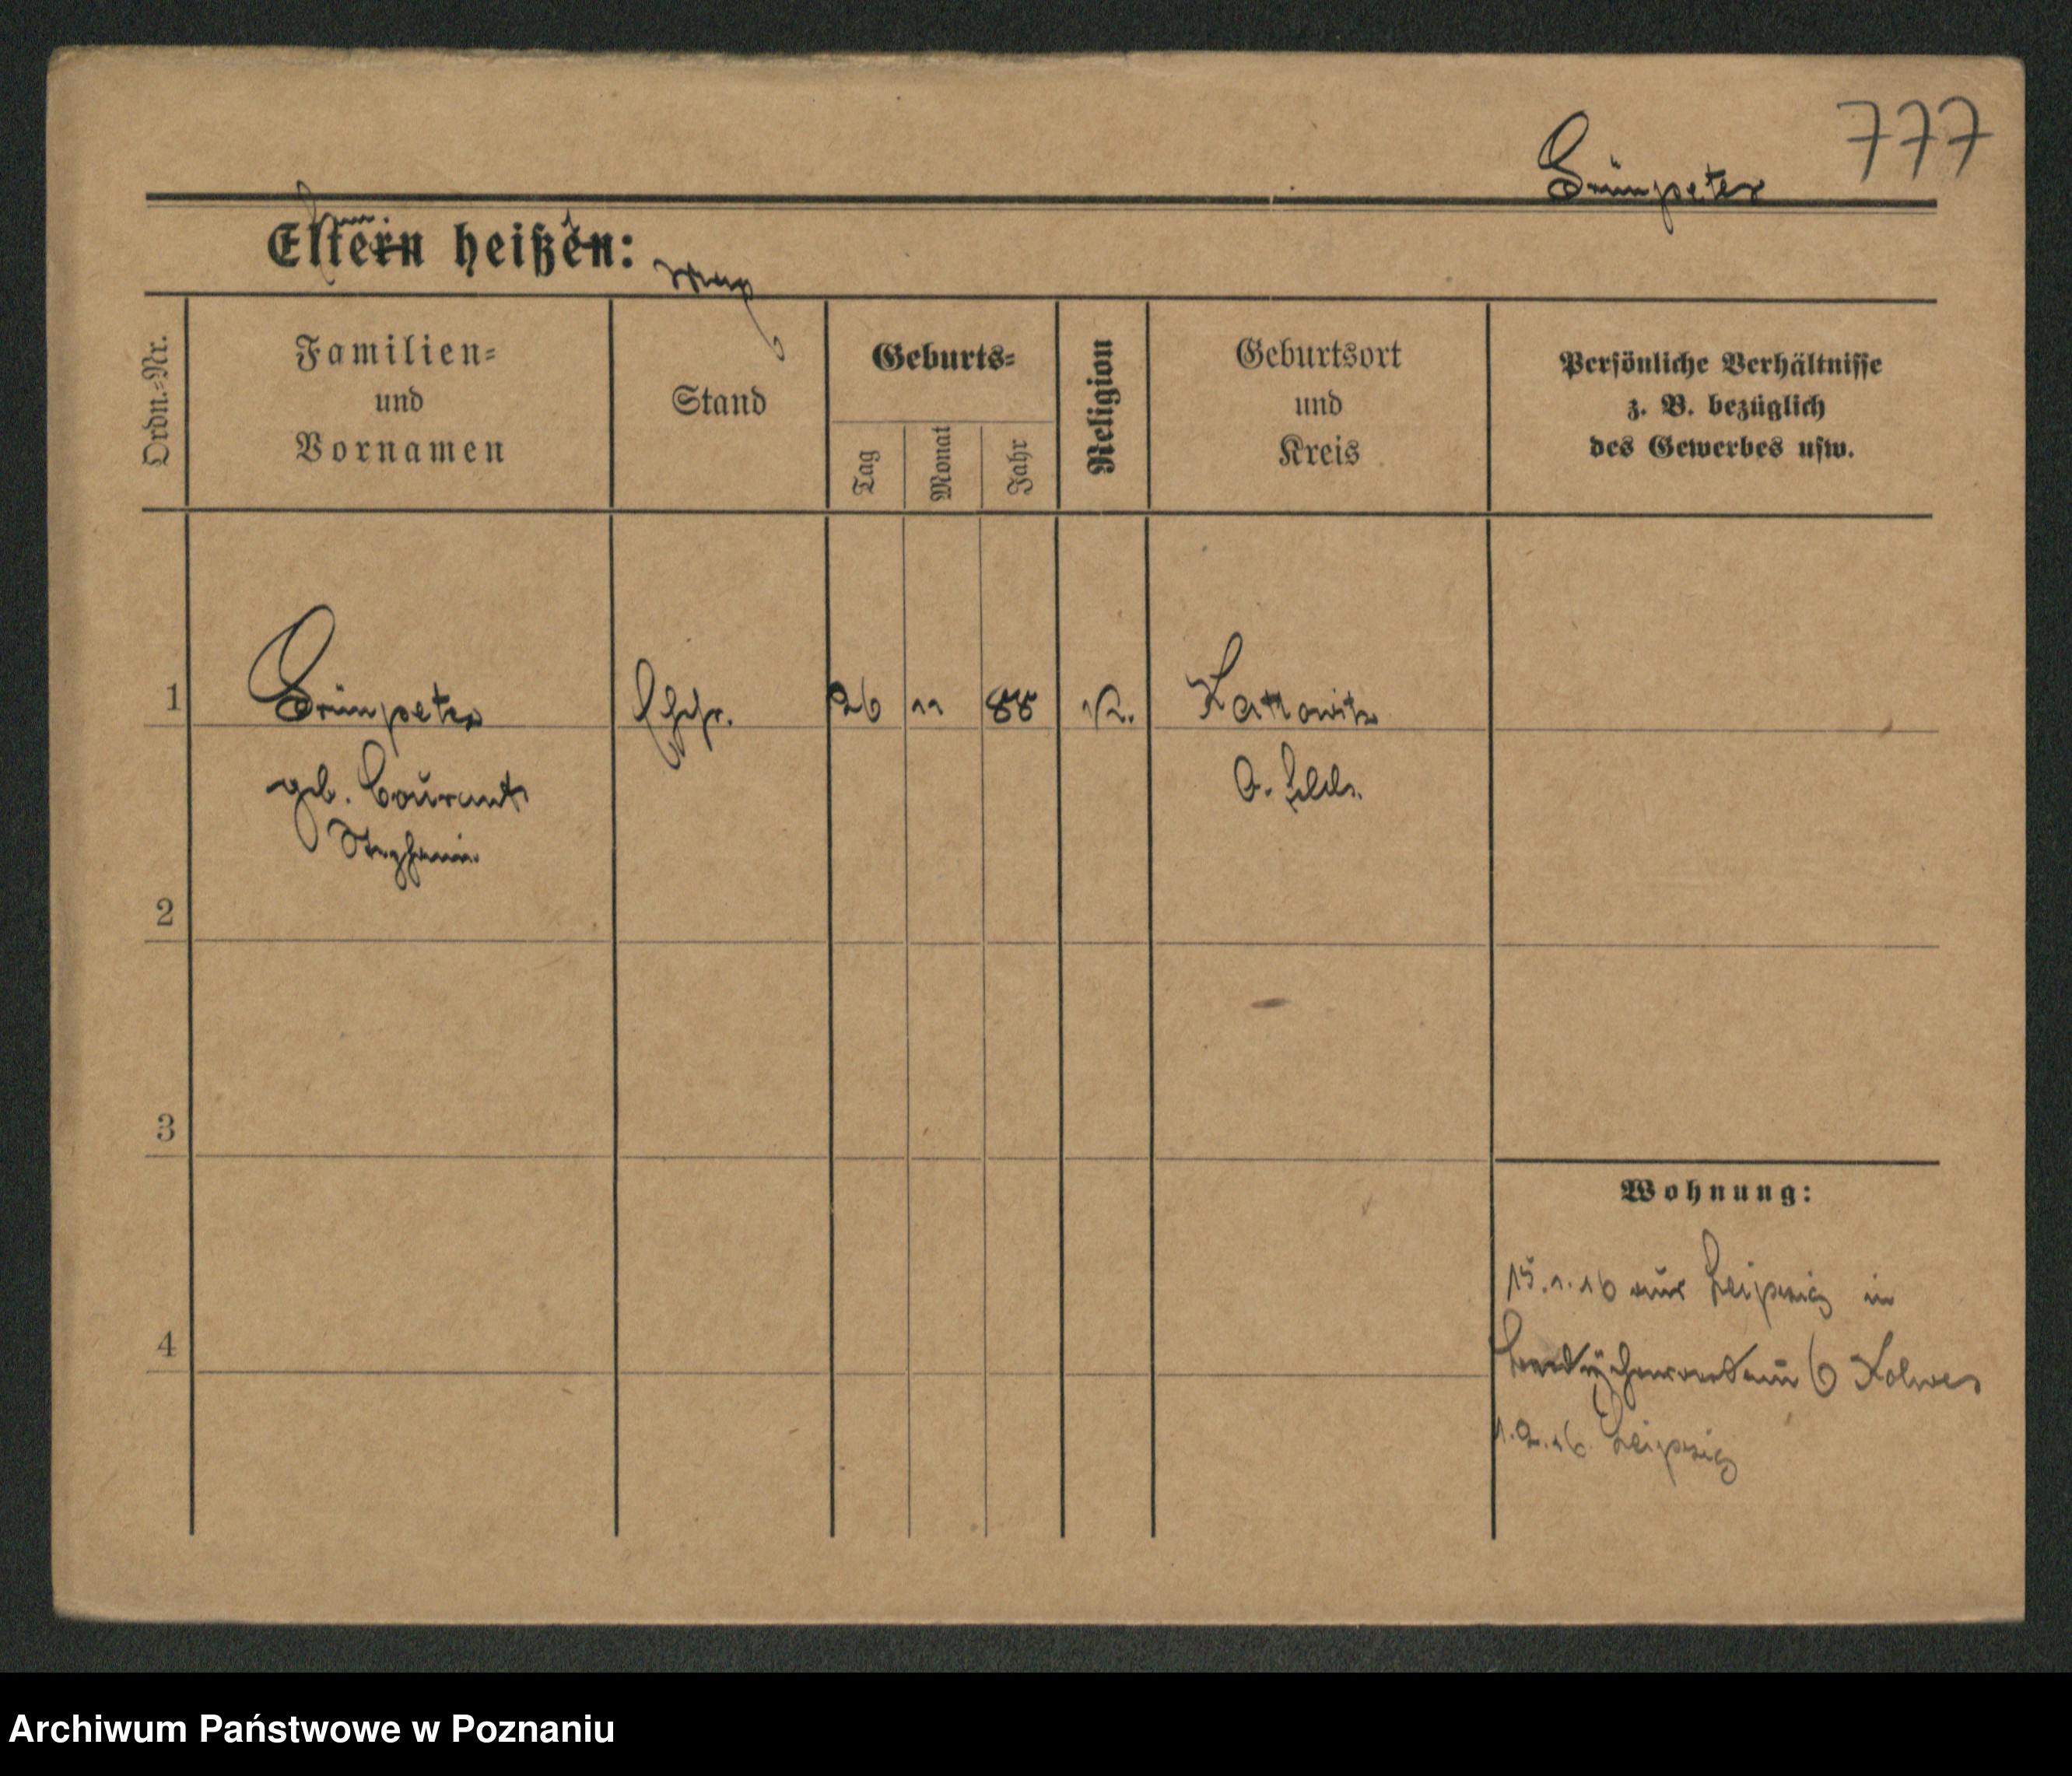 777
Grünpeter
Eltern heißen:
Ordn.-Nr.
Familien-
und
Vornamen
Stand
Geburts-
Tag
Monat
Jahr
Religion
Geburtsort
und
Kreis
Persönliche Verhältnisse
z. B. bezüglich
des Gewerbes usw.
1
Grünpeter
26
11
88
Kattowitz
geb. Courant
O. Schls.
Stephanie
2
3
4
Wohnung:
15.1.16 aus Leipzig in
6
1.2.16. Leipzig
Archiwum Państwowe w Poznaniu